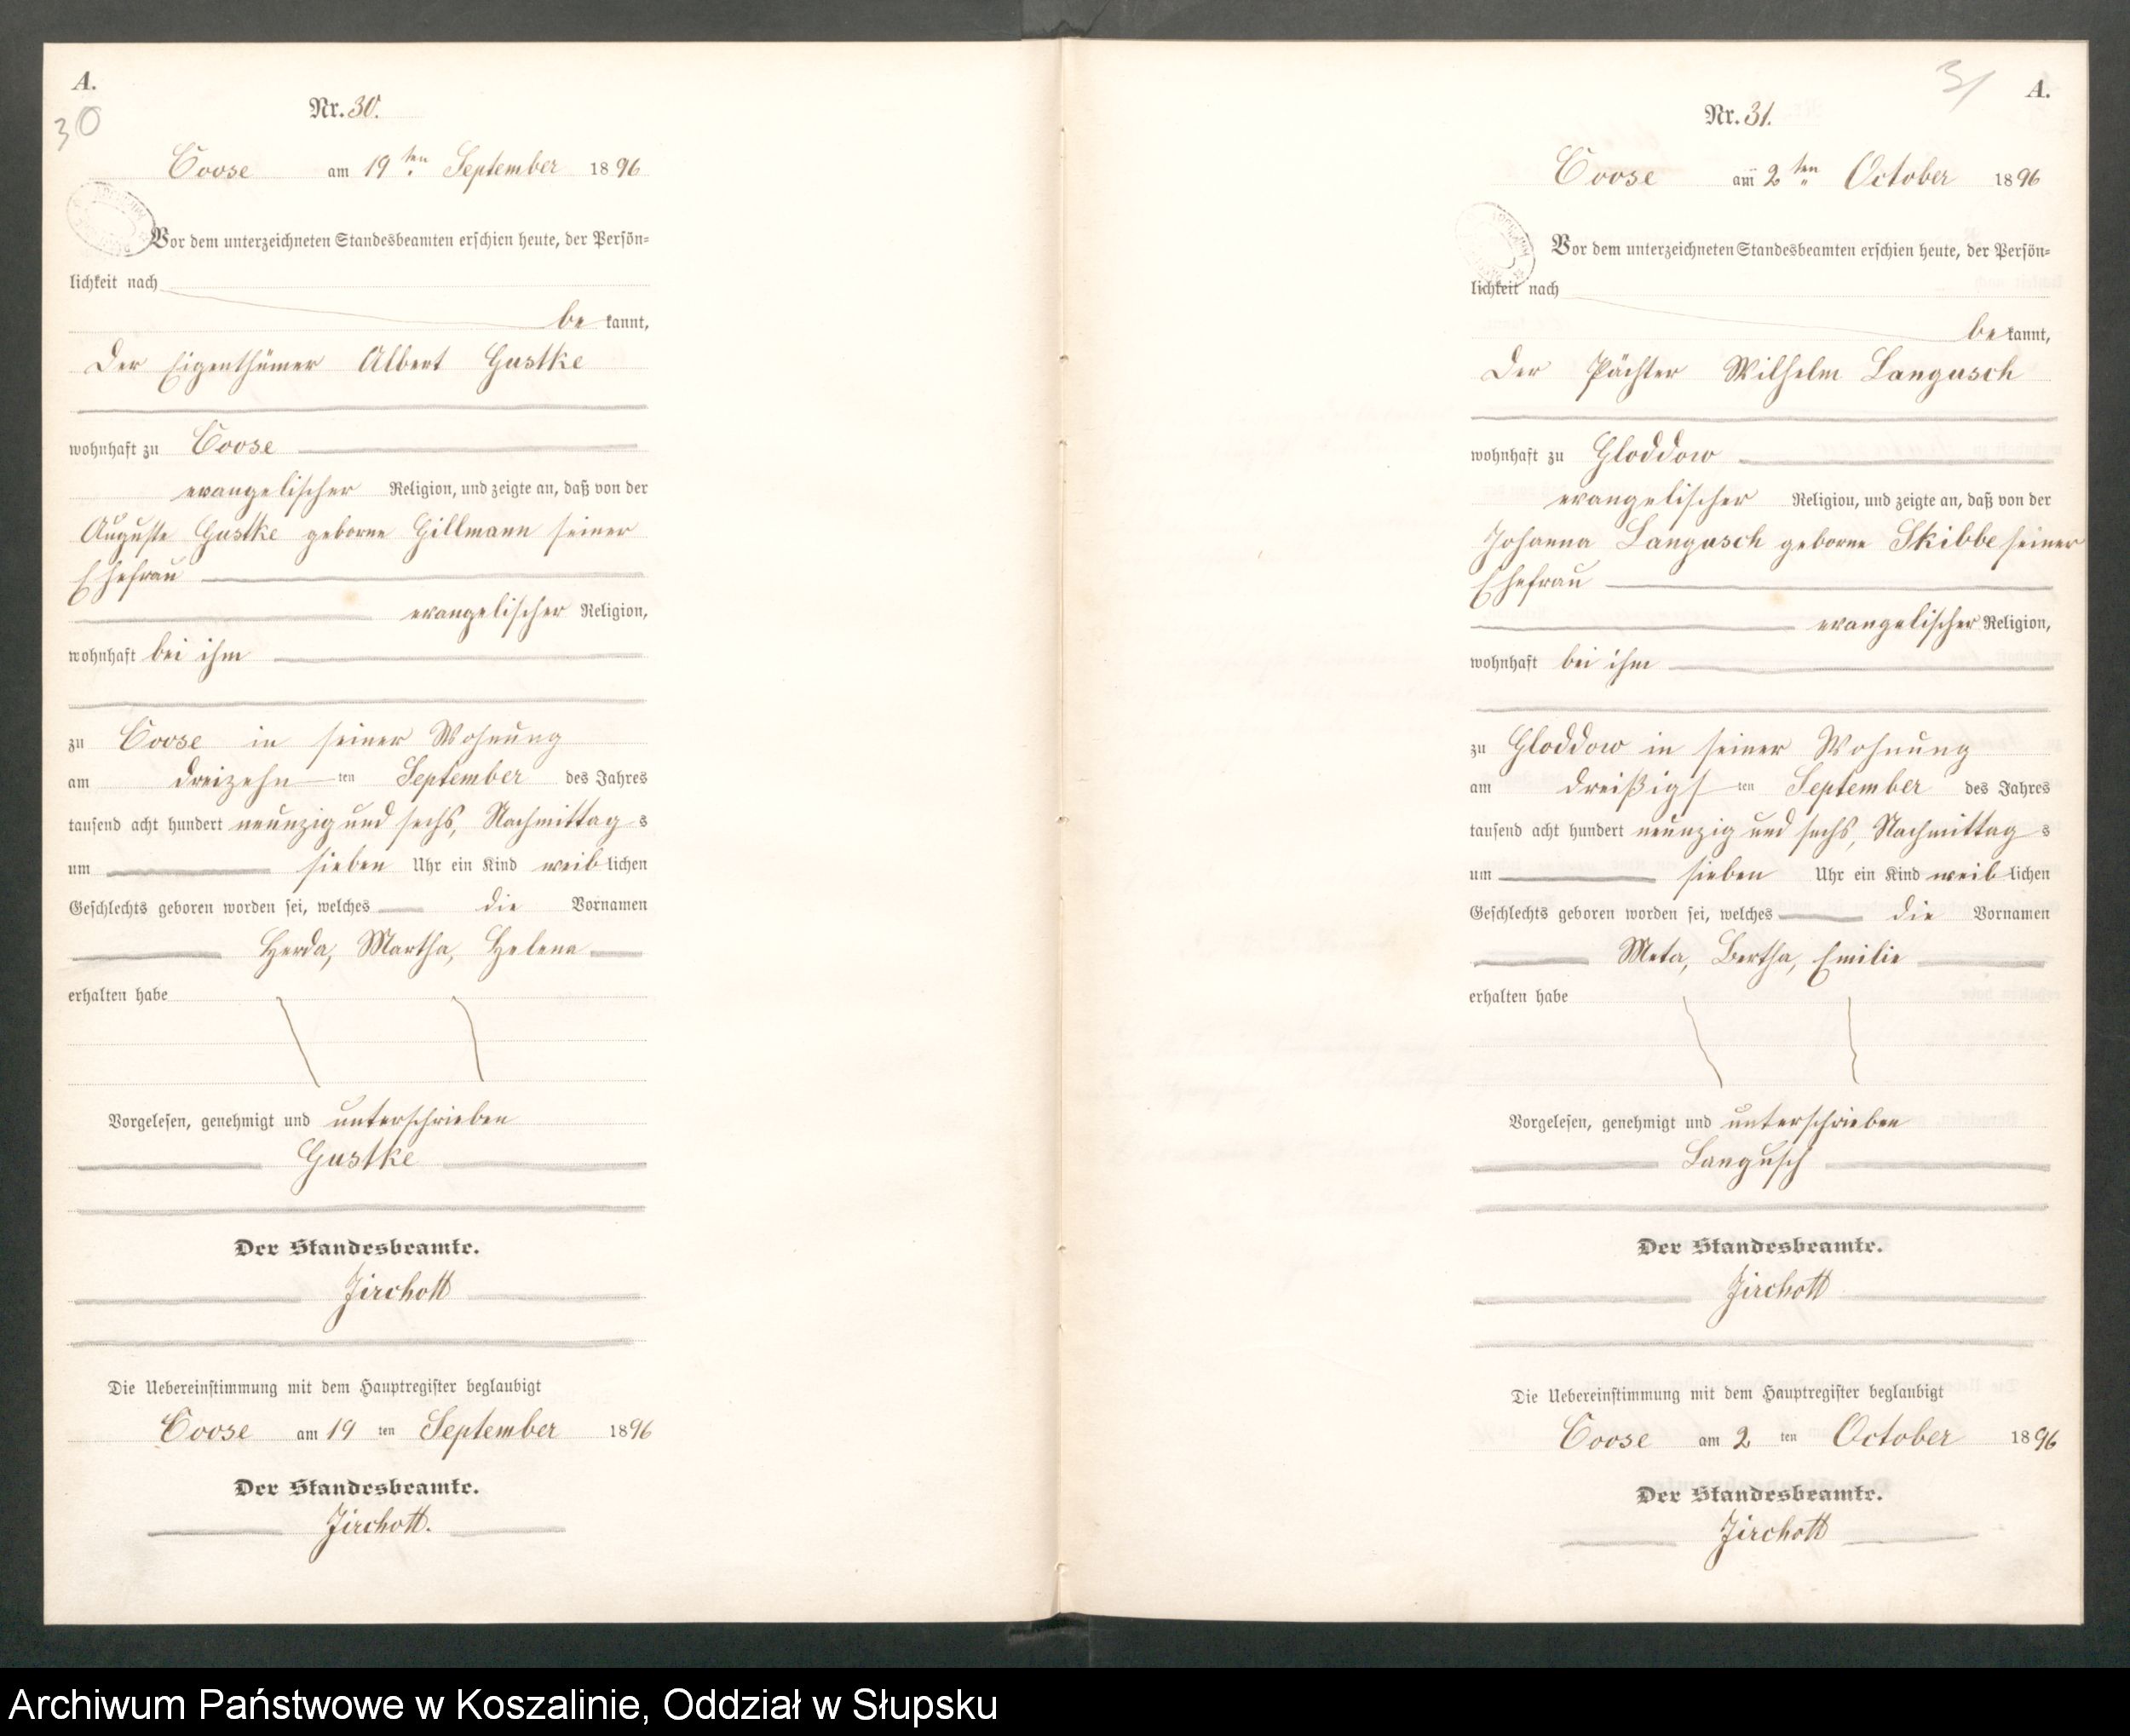 A.
30
Nr. 30.
Coose am 19ten September 1896
Vor dem unterzeichneten Standesbeamten erschien heute, der Persön-
lichkeit nach
be kannt,
Der Eigenthümer Albert Gustke
wohnhaft zu Coose
evangelischer Religion, und zeigte an, daß von der
Auguste Gustke geborne Hillmann seiner
Ehefrau
evangelischer Religion,
wohnhaft bei ihm
zu Coose in seiner Wohnung
am dreizehn ten September des Jahres
tausend acht hundert neunzig und sechs, Nachmittag s
um sieben Uhr ein Kind weib lichen
Geschlechts geboren worden sei, welches die Vornamen
Herda, Martha, Helena
erhalten habe
Vorgelesen, genehmigt und unterschrieben
Gustke
Der Standesbeamte.
Zirchott
Die Uebereinstimmung mit dem Hauptregister beglaubigt
Coose am 19 ten September 1896
Der Standesbeamte.
Zirchott.
31
A.
Nr. 31.
Coose am 2ten October 1896
Vor dem unterzeichneten Standesbeamten erschien heute, der Persön-
lichkeit nach
be kannt,
Der Pächter Wilhelm Langusch
wohnhaft zu Gloddow
evangelischer Religion, und zeigte an, daß von der
Johanna Langusch geborne Skibbe seiner
Ehefrau
evangelischer Religion,
wohnhaft bei ihm
zu Gloddow in seiner Wohnung
am dreißigs ten September des Jahres
tausend acht hundert neunzig und sechs, Nachmittag s
um sieben Uhr ein Kind weib lichen
Geschlechts geboren worden sei, welches die Vornamen
Meta, Bertha, Emilie
erhalten habe
Vorgelesen, genehmigt und unterschrieben
Langusch
Der Standesbeamte.
Zirchott
Die Uebereinstimmung mit dem Hauptregister beglaubigt
Coose am 2 ten October 1896
Der Standesbeamte.
Zirchott
Archiwum Państwowe w Koszalinie, Oddział w Słupsku